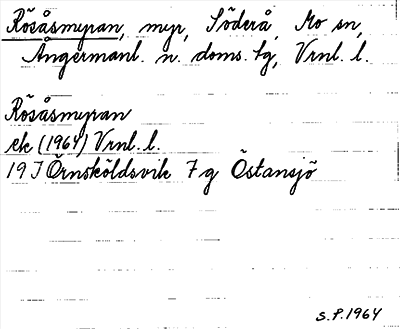 Rösåsmyran, myr, Söderå, Mo sn,
Ångermanl. n. doms. fg, Vrnl. l.
Rösåsmyran
ek (1964) Vrnl. l.
19 J Örnsköldsvik 7 g Östansjö
S.P. 1964